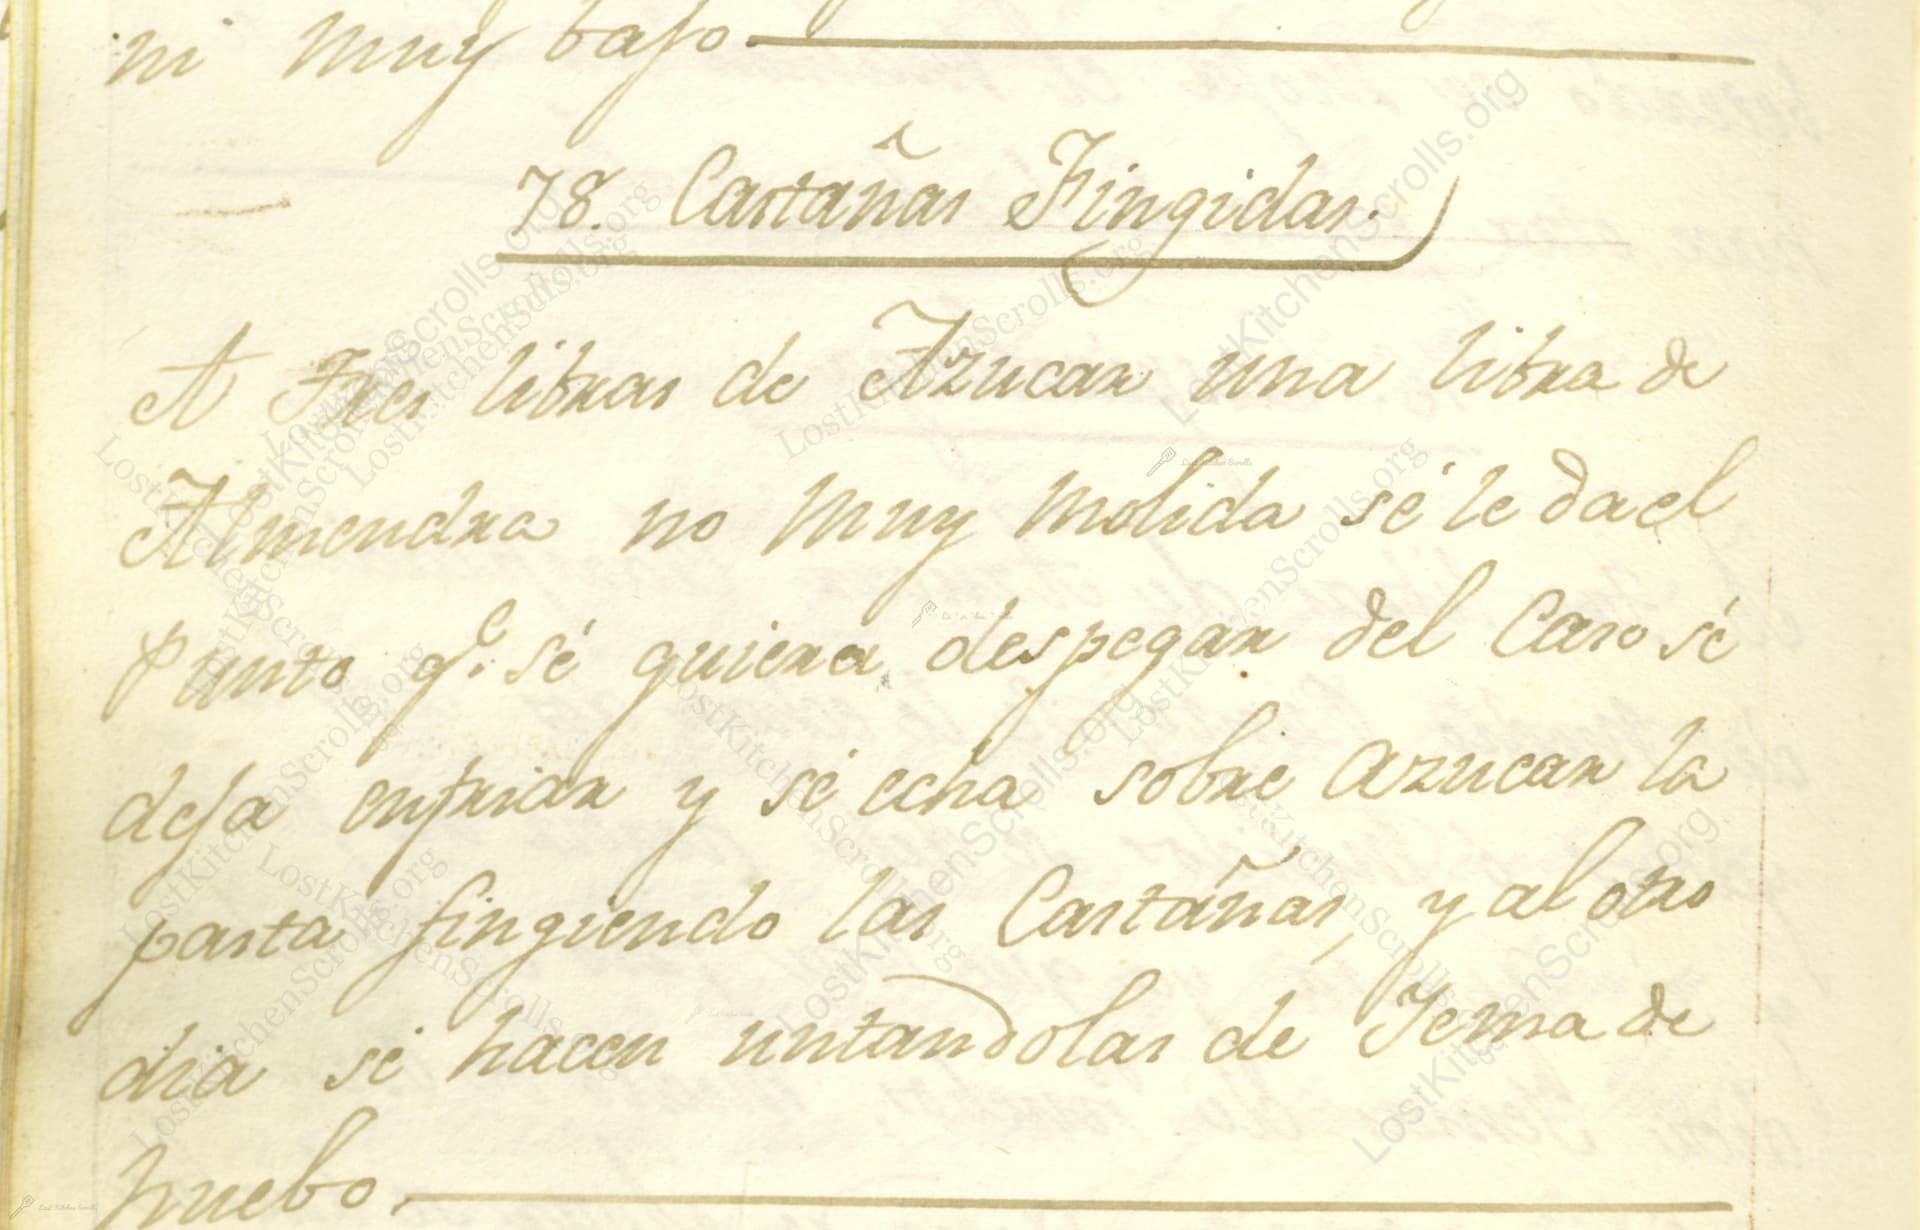 ni muy bajo
78. Castañas Fingidas.
A Tres libras de Azucar una libra de
Almendra no muy molida sé le da el
Punto q.e sé quiera despegar del Caso sé
deja enfriar y sé echa sobre azucar la
pasta fingiendo las Castañas, y al otro
dia sé hacen untandolas de Yema de
huebo.